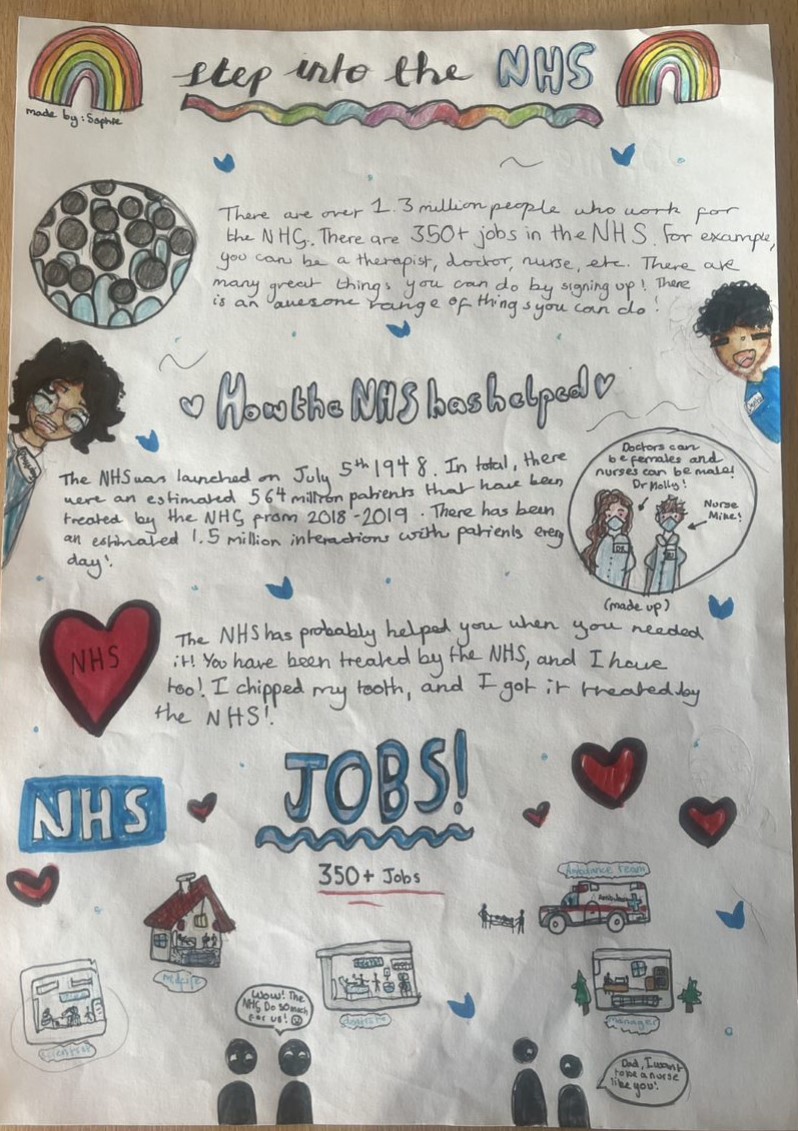 step into the NHS
made by: Sophie
There are over 1.3 million people who work for
the NHS. There are 350+ jobs in the NHS. For example,
you can be a therapist, doctor, nurse, etc. There are
many great things you can do by signing up! There
is an awesome range of things you can do!
How the NHS has helped
The NHS was launched on July 5th 1948. In total, there
were an estimated 564 million patients that have been
treated by the NHS from 2018-2019. There has been
an estimated 1.5 million interactions with patients every
day!
Doctors can
be females and
nurses can be male!
Dr Molly!
Nurse
Mike!
DR
(made up)
NHS
The NHS has probably helped you when you needed
it! You have been treated by the NHS, and I have
too! I chipped my tooth, and I got it treated by
the NHS!
JOBS!
NHS
350+ Jobs
Ambulance team
Ambulance
midwife
scientist
dentist
manager
Wow! The
NHS Do so much
for us!
Dad, I want
to be a nurse
like you!